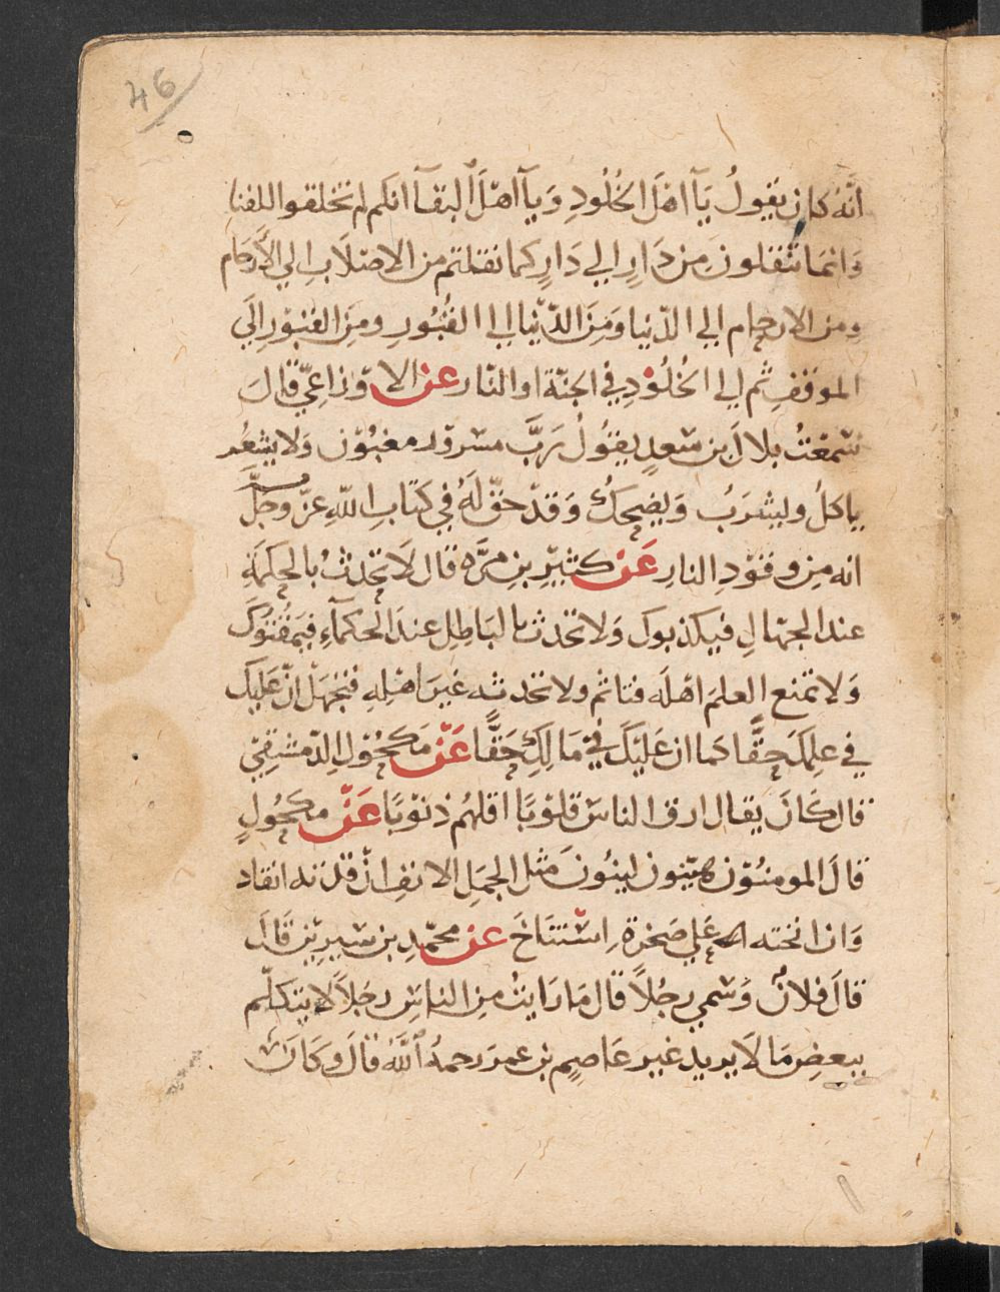 46
انَّهُ كان يقولُ يَآ اهلَ الخُلُودِ وَيآ اهْلَ البقآ انكم لم تخلقوا للفنا
وَانمَا تنقلون مِن دَارٍ الي دَارٍ كما نقلتم من الاصْلَابِ الي الأَرحَام
ومن الارحام الي الدّنيا وَمِنَ الدّنيا الي القُبُورِ ومِنَ القبوْرِ الَي
الموقفِ ثم الي الخُلُوْدِ في الجنّة او النار عن الاوْزاعِيّ قالَ
سَمعْتُ بلالَ بن سَعدٍ يقوُلُ رَبَّ مسرورٍ مغبُوْن وَلا يشعُر
ياكلُ ويشرَبُ وَيضحكُ وَقدْ حقّ لَهُ في كتَابِ اللهِ عزّ وجَلَّ
انه مِن وقوْدِ النارِ عَنْ كثيْرِ بنِ مرَّه قال لَا تحدثُ بالحكمَةِ
عند الجهّالِ فيكذبوك وَلا تحدث بالبَاطِلِ عندَ الحكمآءِ فيَمْقُتُوكَ
وَلا تمنع العلمَ اهلَه فتاثم ولا تحدثه غيرَ اهْلِهِ فتجهَلْ انّ عَليْك
في علمِكَ حقًّا كما ان عَليْكَ في مَالِكَ حَقًّا عَنْ مَكحُوْلِ الدّمشقِيّ
قال كَانَ يقال ارق الناسْ قلوْبًا اقلهُم ذنوْبًا عَنْ مكحُولٍ
قالَ المومنُوْن هيّنون لينُونَ مثْل الجمَلِ الانفِ انْ قدْته انقاد
وَان انخته عَلي صَخرَةٍ اسْتنَاخَ عن محمّدِ بن سيرِيْن قَالَ
قالَ فلانٌ وَسَمي رجُلاً قال مَا رَايتُ مِن الناسِ رجَلاً لا يتكلّم
ببعضِ مَا لَا يريد غير عَاصِمٍ بن عمرَ رحمهُ اللهُ قالَ وكَانَ